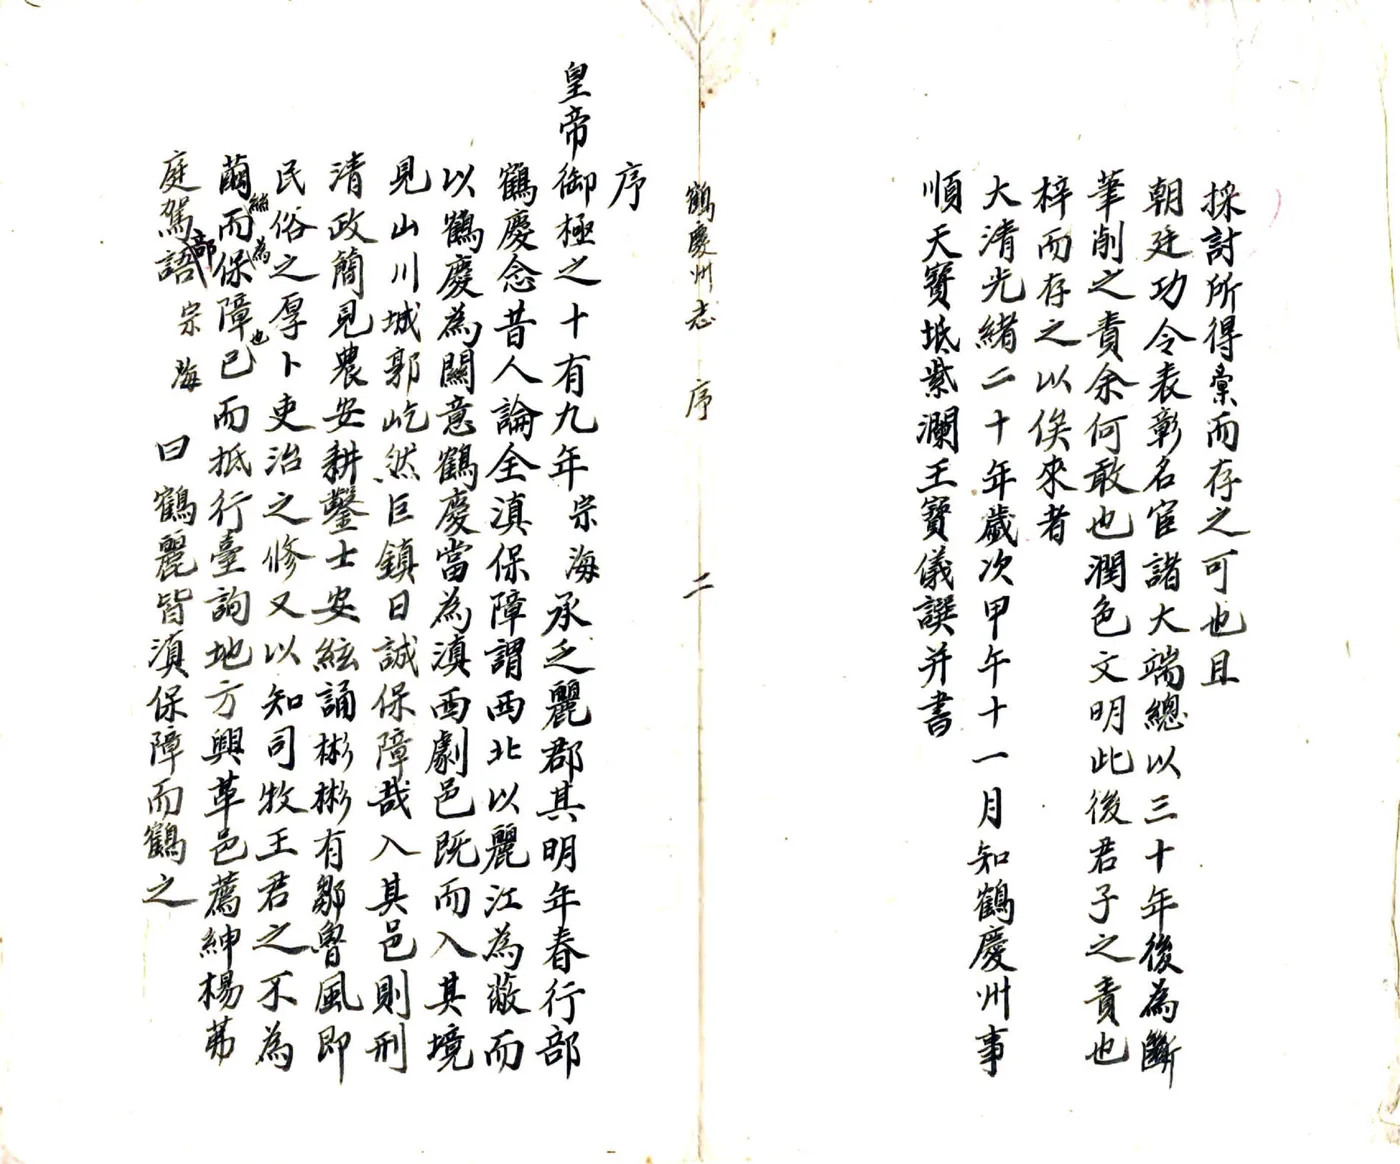 採討所得彙而存之可也且
朝廷功令表彰名宦諸大端總以三十年後為斷
筆削之責余何敢也潤色文明此後君子之責也
梓而存之以俟來者
大清光緒二十年歲次甲午十一月知鶴慶州事
順天寶坻紫瀾王寶儀譔并書
鶴慶州志 序 二
序
皇帝御極之十有九年宗海承乏麗郡其明年春行部
鶴慶念昔人論全滇保障謂西北以麗江為蔽而
以鶴慶為關意鶴慶當為滇西劇邑既而入其境
見山川城郭屹然巨鎮曰誠保障哉入其邑則刑
清政簡見農安耕鑿士安絃誦彬彬有鄒魯風即
民俗之厚卜吏治之修又以知司牧王君之不為
繭絲而為保障也已而抵行臺詢地方興革邑薦紳楊茀
庭駕部語宗海曰鶴麗皆滇保障而鶴之